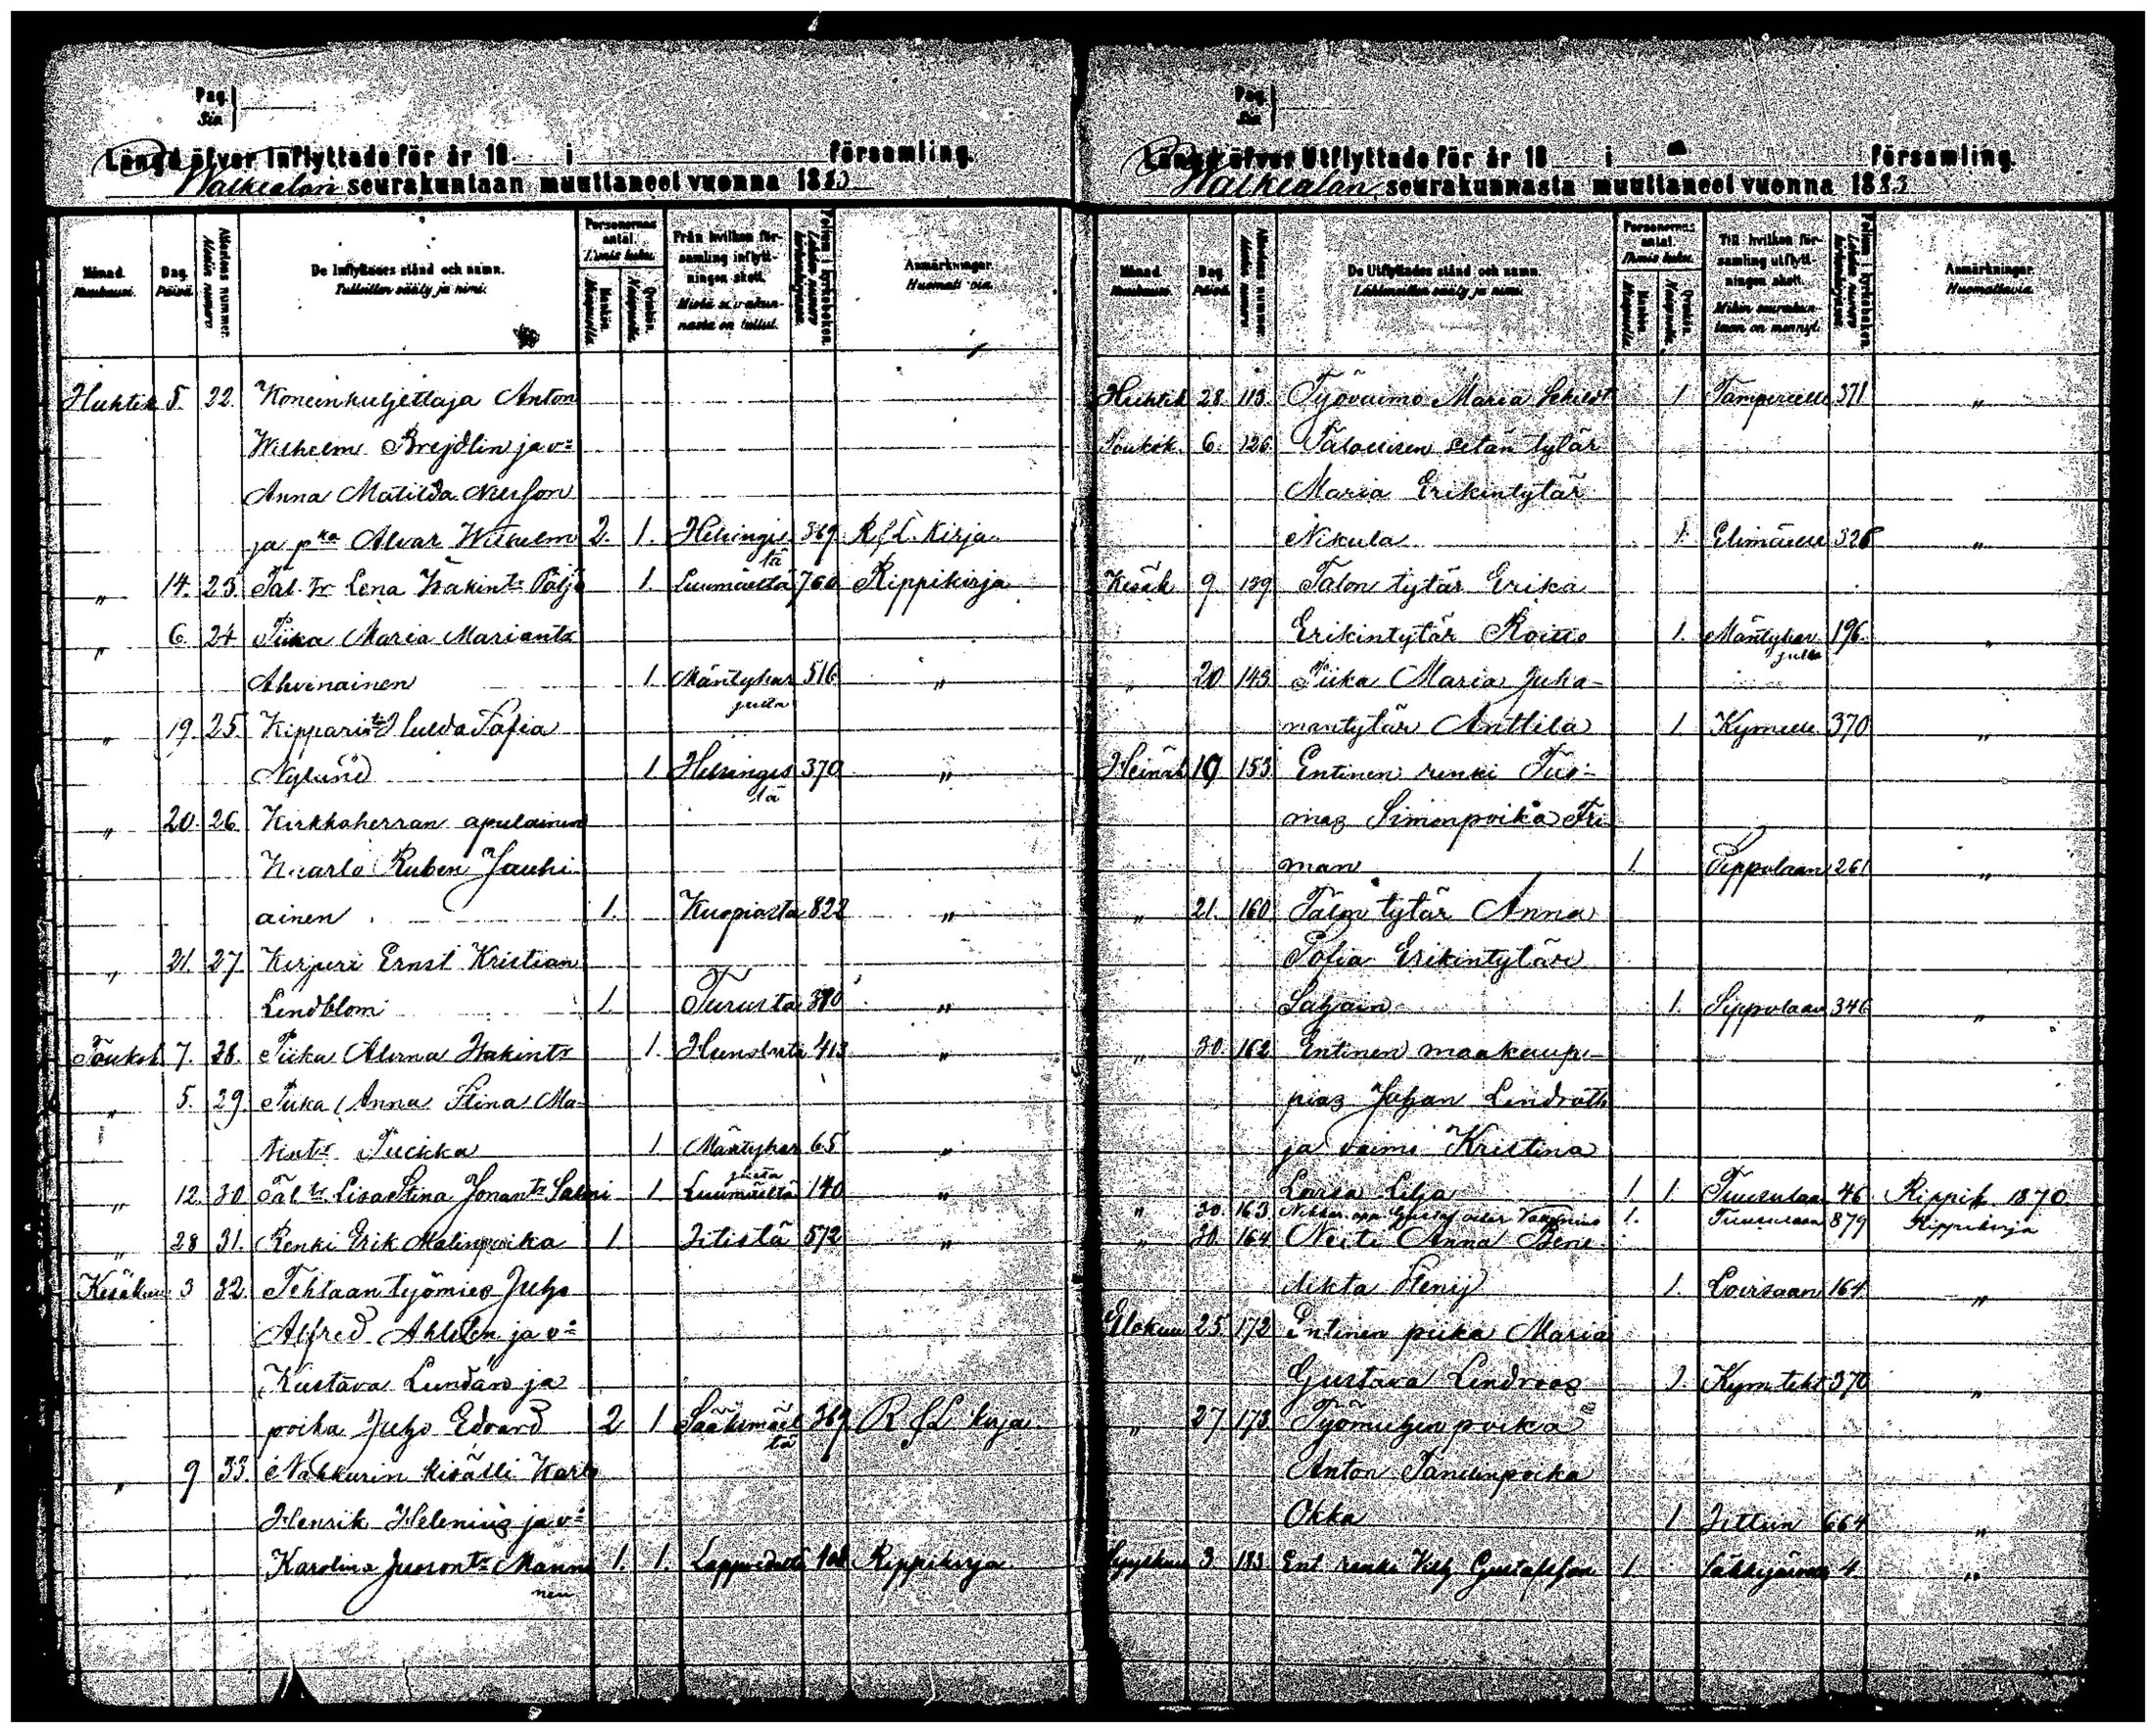 Pag.
Siv.
Längd öfver Inflyttade för år 18 i församling.
Walkealan seurakuntaan muuttaneet vuonna 1883
Månad. Kuukausi.
Dag. Päivä.
De Inflyttades stånd och namn.
Personernas antal.
Mankön. Miespuolia.
Qvinkön. Naispuolia.
Från hvilken församling inflyttningen skett.
Mistä seurakunnasta on tullut.
Anmärkningar.
Huomattavia.
Huhtik 5. 22. Koneenkuljettaja Anton
Wilhelm Breydlin ja v:
Anna Matilda Nilsson
ja pka Alvar Wilhelm 2. 1. Helsingis 369 R f L. Kirja
tä
„ 14. 23. Tal. tr Lena Haakint: Pätjä 1. Luumäeltä 760 Rippikirja
„ 6. 24 Piika Maria Mariantr
Ahvenainen 1 Mäntyhar 516 „
julta
„ 19. 25. Kipparin tr Hulda Sofia
Nylund 1 Helsingis 370 „
tä
„ 20. 26 Kirkkoherran apulainen
Kaarlo Ruben Jauhi
ainen 1. Kuopiosta 822 „
„ 21. 27 Kirjuri Ernst Kristian
Lindblom 1. Turusta 380 „
Toukok 7. 28. Piika Haakintr 1. 413 „
„ 5. 29. Piika Anna Stina Ma-
tintr 1 Mäntyhar 65 „
julta
„ 12. 30 Tal tr Lisa Stina Jonantr Salmi 1. Luumäeltä 140 „
„ 28 31. Renki Erik Matinpoika 1. Iitistä 572 „
Kesäkuu 3 32. Tehtaan työmies Juho
Alfred Ahlsten ja v:
Kustava Lundan ja
poika Juho Edvard 2 1 Sääksmäel 369 R f L kirja
tä
„ 9 33. Nahkurin kisälli Karl
Henrik Helenius ja v:
Karolina Jusontr Manni 1. 1. Lappvedeltä 408 Rippikirja
nen
Pag.
Siv.
Längd öfver Utflyttade för år 18 i församling.
Walkealan seurakunnasta muuttaneet vuonna 1883
Månad. Kuukausi.
Dag. Päivä.
De Utflyttades stånd och namn.
Personernas antal.
Mankön. Miespuolia.
Qvinkön. Naispuolia.
Till hvilken församling utflyttningen skett.
Mihin seurakuntaan on mennyt.
Anmärkningar.
Huomattavia.
Huhtik 28. 113. Työvaimo Maria Schildt 1 Tampereelle 371 „
Toukok. 6. 126 Talollisen setän tytär
Maria Erikintytär
Nikula 1. Elimäelle 326 „
Kesäk 9. 139 Talon tytär Erika
Erikintytär Roitto 1. Mäntyhar 196. „
julle
„ 20. 143 Piika Maria Juha-
nantytär Anttila 1 Kymille 370 „
Heinäk 19 153 Entinen renki Tuo-
mas Simonpoika Fri-
man 1. Sippolaan 261 „
„ 21. 160 Talon tytär Anna
Sofia Erikintytär
1. Sippolaan 346 „
„ 30. 162 Entinen maakaup-
pias Johan Lindroth
ja vaimo Kristina
Lovisa Lilja 1. 1. Tuusulaan 46 Rippik 1870
„ 30. 163 1. Tuusulaan 879 Rippikirja
„ 30. 164 Neiti Anna Bene-
dikta Stenij 1. Loviisaan 164. „
Elokuu 25. 172 Entinen piika Maria
Gustava Lindroos 1. Kym teht 370 „
„ 27. 173 Työmiehen poika
Anton Taneliupoika
Okka 1 Iittiin 664 „
Syyskuu 3 183 Ent. renki Vilh Gustafsson 1. Säkkijärvelle 4 „